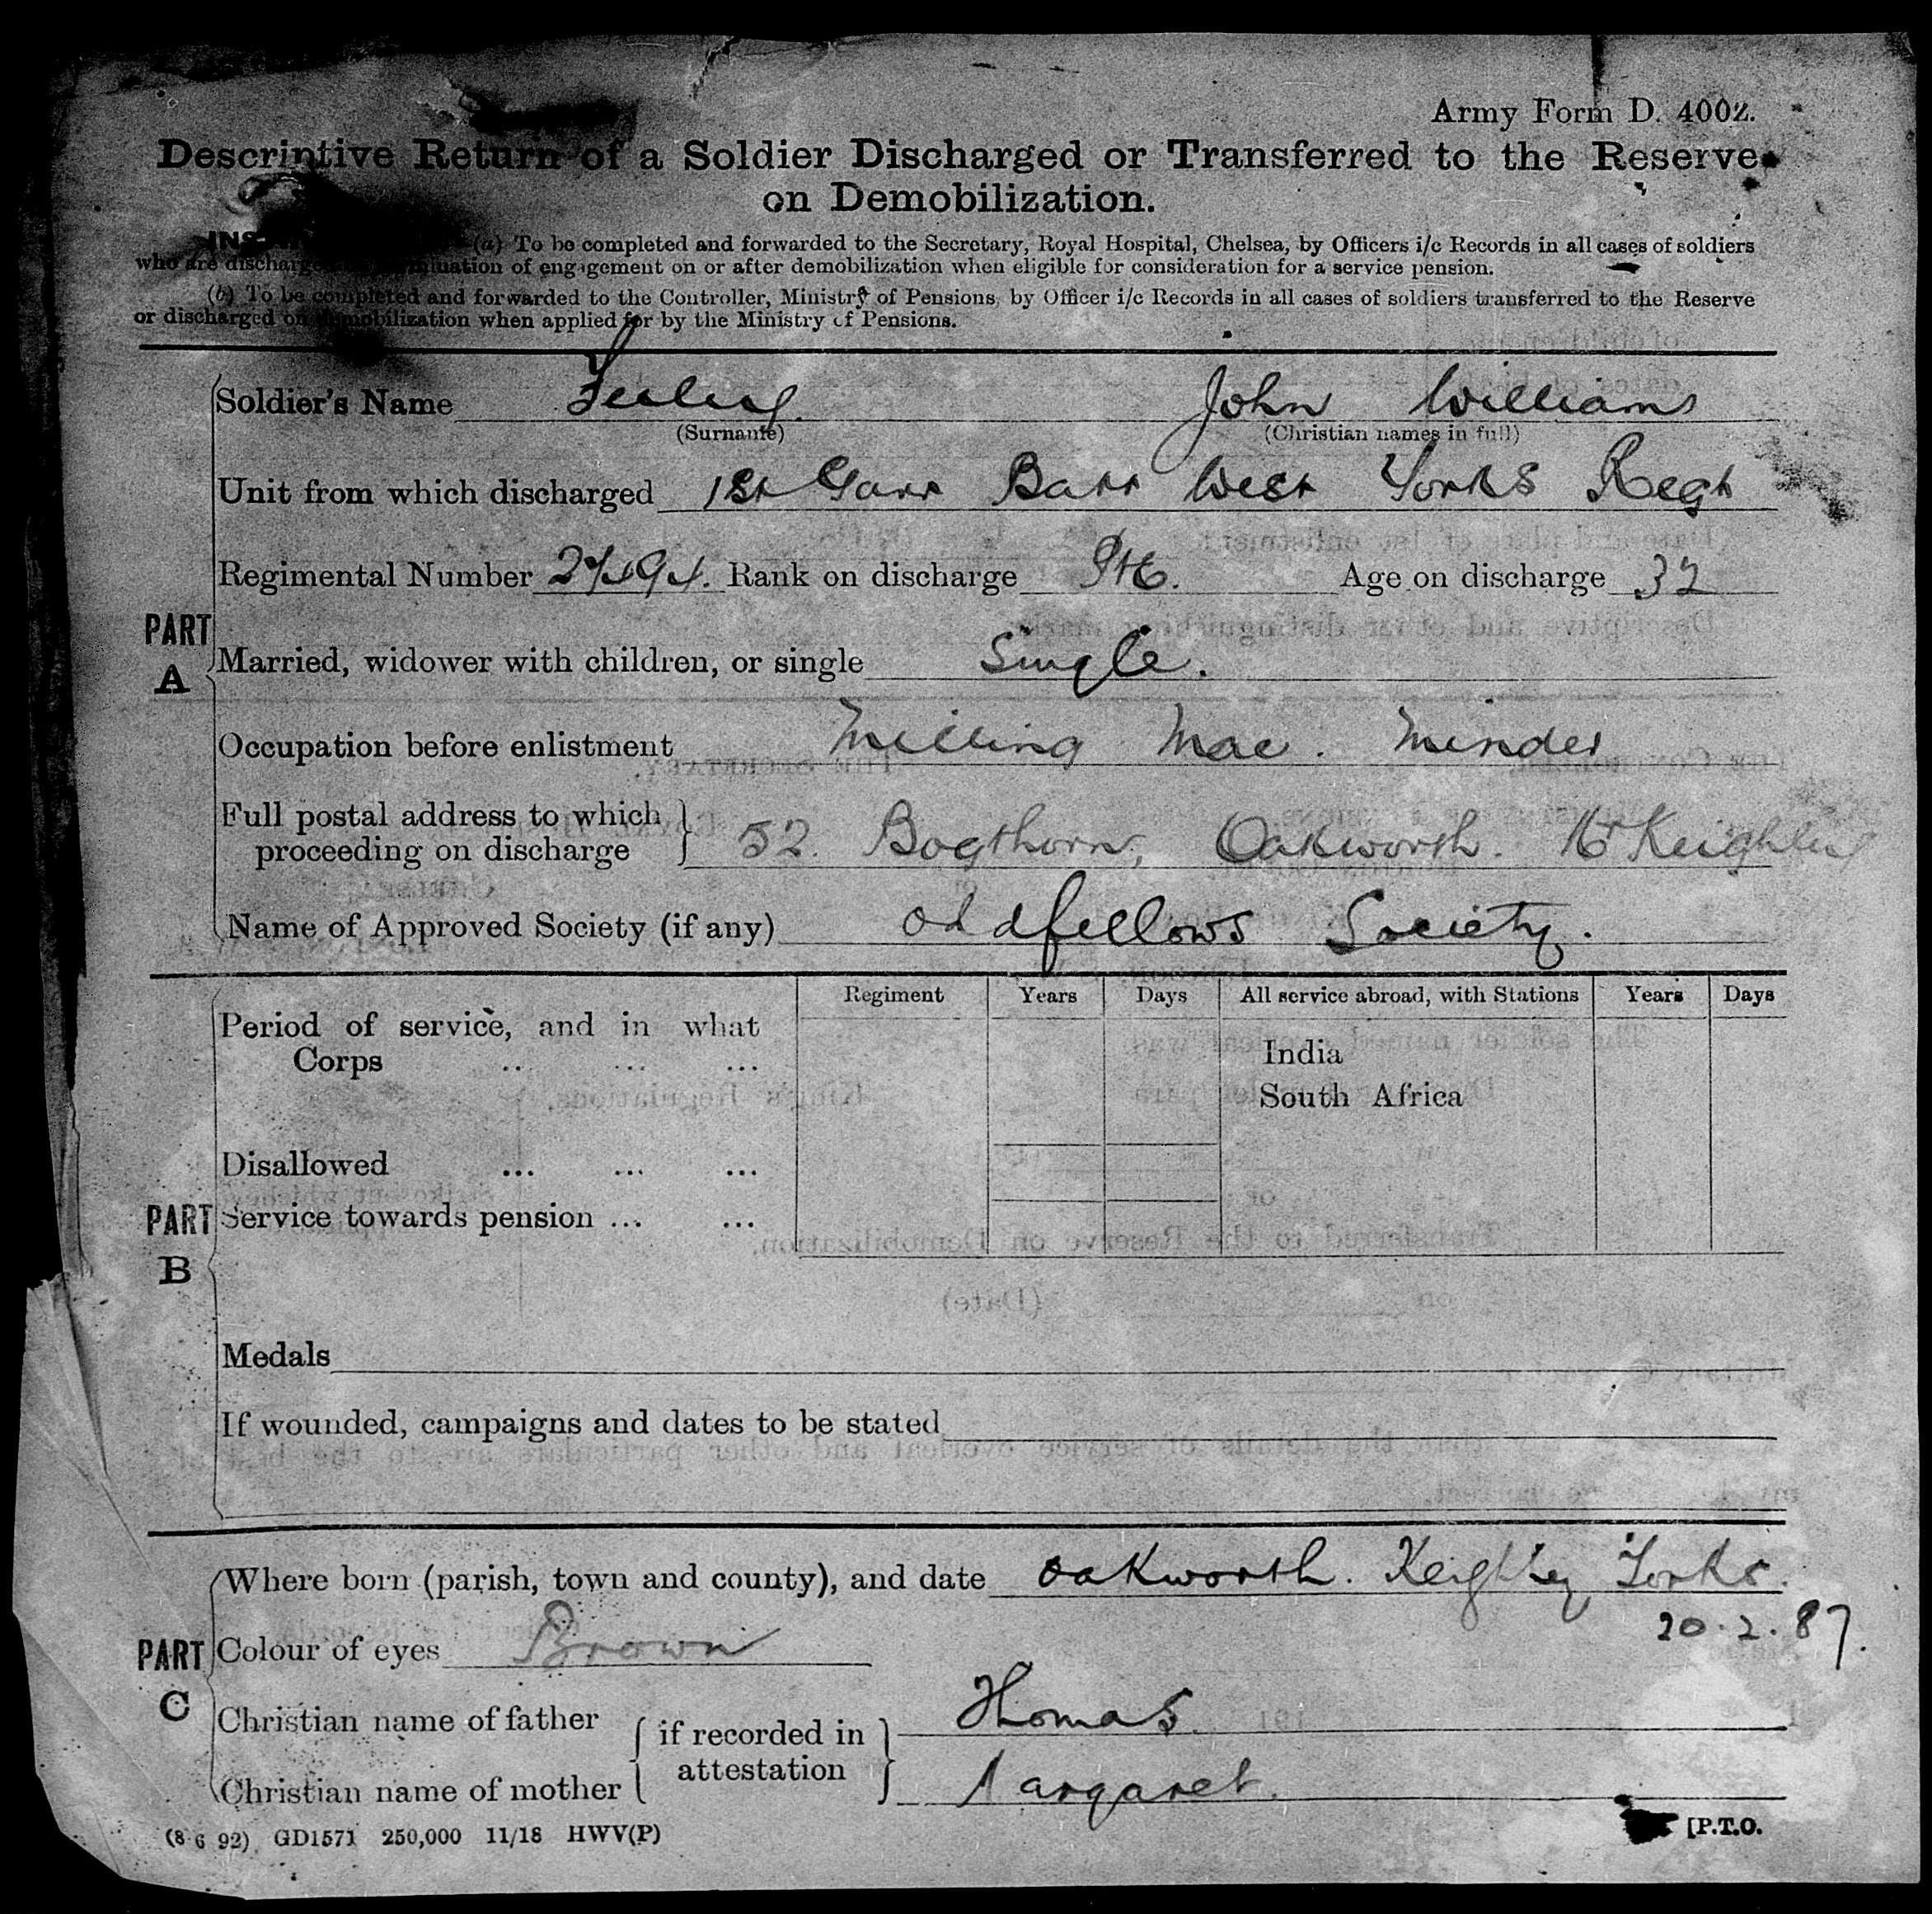 Army Form D. 4002.
Descriptive Return of a Soldier Discharged or Transferred to the Reserve
on Demobilization.
(a) To be completed and forwarded to the Secretary, Royal Hospital, Chelsea, by Officers i/c Records in all cases of soldiers
who are discharged of engagement on or after demobilization when eligible for consideration for a service pension.
(b) To be completed and forwarded to the Controller, Ministry of Pensions, by Officer i/c Records in all cases of soldiers transferred to the Reserve
or discharged on demobilization when applied for by the Ministry of Pensions.
PART A
Soldier's Name John William
(Surname) (Christian names in full)
Unit from which discharged 1st Garr Batt West Yorks Regt
Regimental Number Rank on discharge Pte. Age on discharge 32
Married, widower with children, or single Single.
Occupation before enlistment Milling Mac. Minder
Full postal address to which
proceeding on discharge 52. Bogthorn, Oakworth. Nr Keighley
Name of Approved Society (if any) Oddfellows Society.
PART B
Regiment Years Days All service abroad, with Stations Years Days
Period of service, and in what
Corps .. ... ...
India
South Africa
Disallowed ... ... ...
Service towards pension ... ...
Medals
If wounded, campaigns and dates to be stated
PART C
Where born (parish, town and county), and date Oakworth. Keighley Yorks.
20.2.87.
Colour of eyes Brown
Christian name of father Thomas.
if recorded in
attestation
Christian name of mother Margaret.
(8 6 92) GD1571 250,000 11/18 HWV(P) [P.T.O.